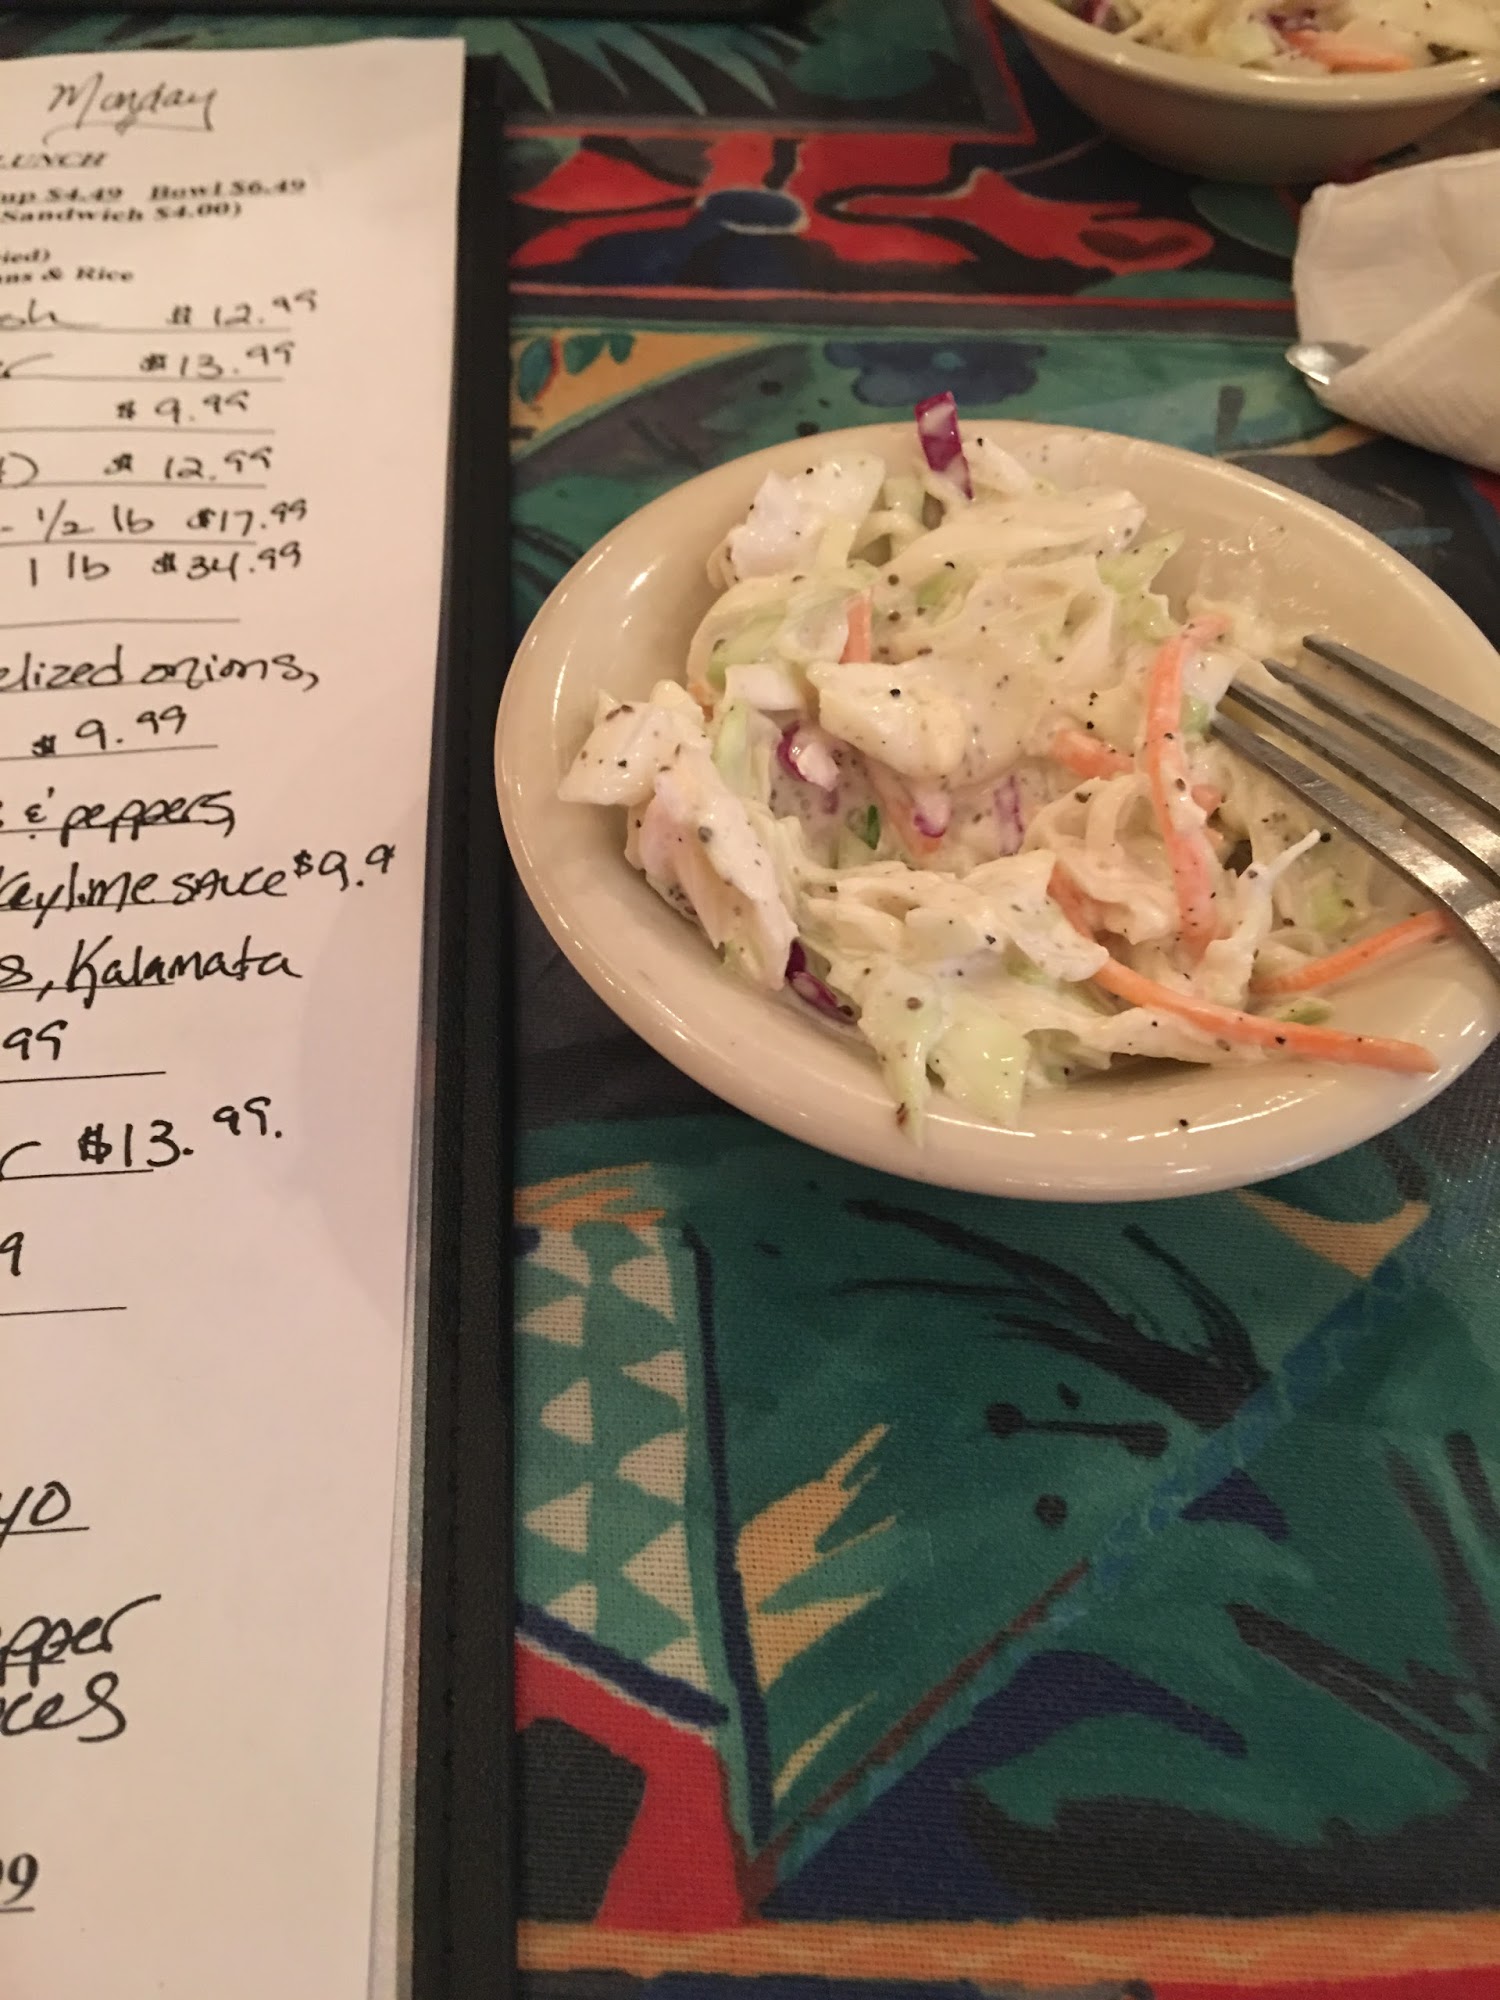 Monday
LUNCH
up $4.49 Bowl $6.49
Sandwich $4.00)
ied)
ns & Rice
sh $12.99
er $13.99
$9.99
) $12.99
- 1/2 lb $17.99
1 lb $34.99
elized onions,
$9.99
& peppers,
Keylime sauce $9.9
s, Kalamata
99
$13.99.
9
yo
pper
ces
99